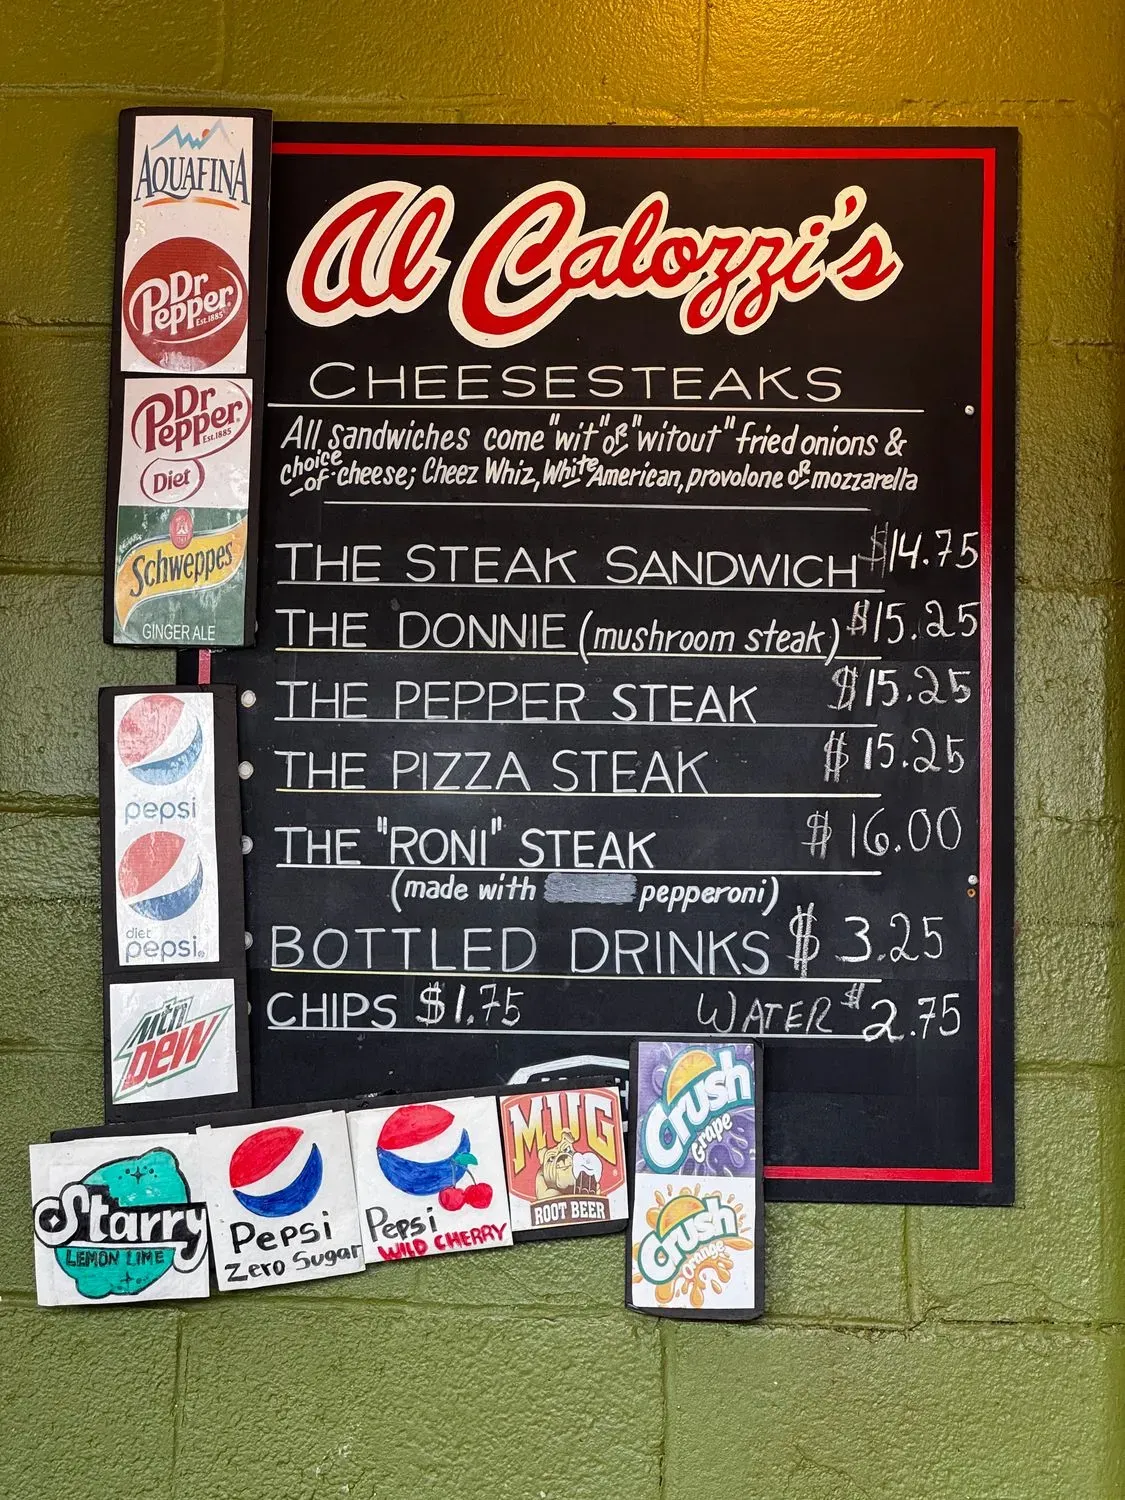 Al Calozzi's
CHEESESTEAKS
All sandwiches come "wit" or "witout" fried onions &
choice of cheese; Cheez Whiz, White American, provolone or mozzarella
THE STEAK SANDWICH $14.75
THE DONNIE (mushroom steak) $15.25
THE PEPPER STEAK $15.25
THE PIZZA STEAK $15.25
THE "RONI" STEAK $16.00
(made with pepperoni)
BOTTLED DRINKS $3.25
CHIPS $1.75 WATER $2.75
AQUAFINA
Dr
Pepper
Est. 1885
Dr
Pepper
Est. 1885
Diet
Schweppes
GINGER ALE
pepsi
diet
pepsi
Mtn
DEW
Starry
LEMON LIME
Pepsi
Zero Sugar
Pepsi
WILD CHERRY
MUG
ROOT BEER
Crush
Grape
Crush
Orange